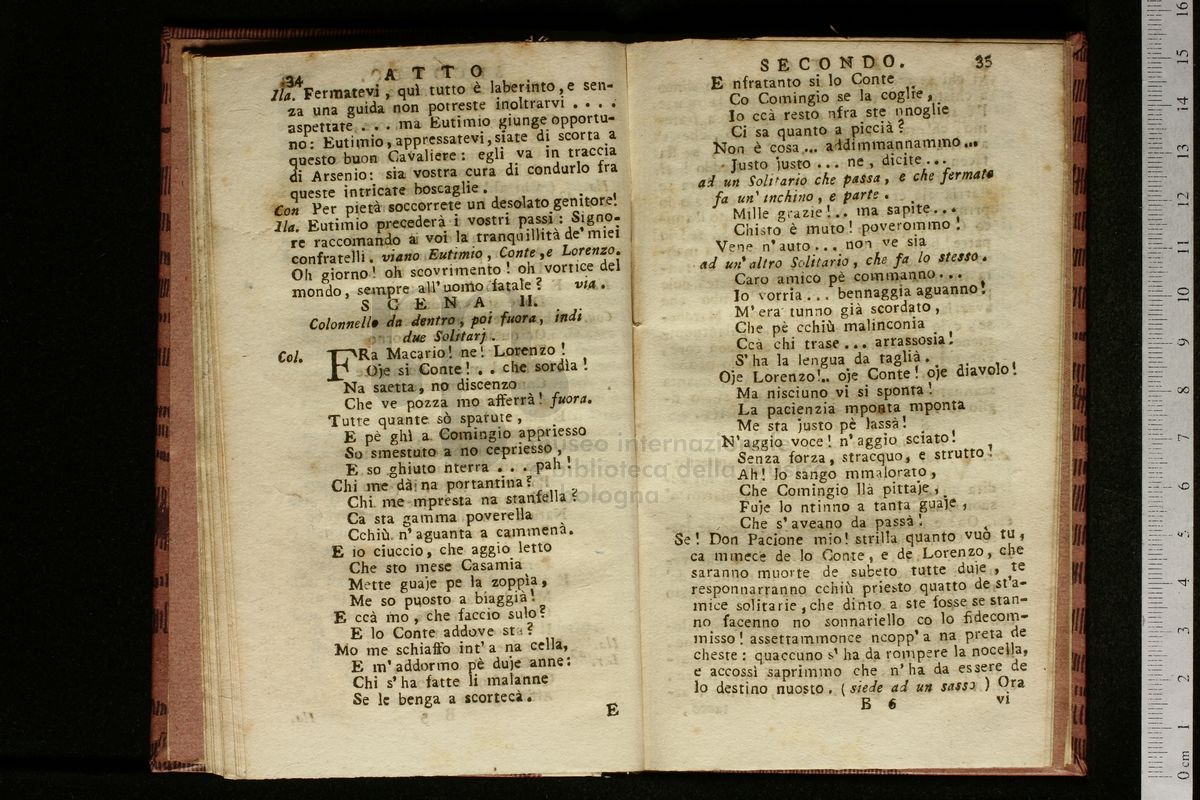 34
A T T O
Ila. Fermatevi, quì tutto è laberinto, e sen-
za una guida non potreste inoltrarvi . . . .
aspettate . . . ma Eutimio giunge opportu-
no: Eutimio, appressatevi, siate di scorta a
questo buon Cavaliere: egli va in traccia
di Arsenio: sia vostra cura di condurlo fra
queste intricate boscaglie.
Con Per pietà soccorrete un desolato genitore!
Ila. Eutimio precederà i vostri passi: Signo-
re raccomando a voi la tranquillità de' miei
confratelli. viano Eutimio, Conte, e Lorenzo.
Oh giorno! oh scovrimento! oh vortice del
mondo, sempre all'uomo fatale? via.
S C E N A II.
Colonnello da dentro, poi fuora, indi
due Solitarj.
Col. FRa Macario! ne! Lorenzo!
Oje si Conte! . . che sordìa!
Na saetta, no discenzo
Che ve pozza mo afferrà! fuora.
Tutte quante sò sparute,
E pè ghì a Comingio appriesso
So smestuto a no cepriesso,
E so ghiuto nterra . . . pah!
Chi me dà na portantina?
Chi me mpresta na stanfella?
Ca sta gamma poverella
Cchiù n'aguanta a cammenà.
E io ciuccio, che aggio letto
Che sto mese Casamia
Mette guaje pe la zoppìa,
Me so puosto a biaggià!
E ccà mo, che faccio sulo?
E lo Conte addove sta?
Mo me schiaffo int'a na cella,
E m'addormo pè duje anne:
Chi s'ha fatte li malanne
Se le benga a scortecà.
E
SECONDO.
35
E nfratanto si lo Conte
Co Comingio se la coglie,
Io ccà resto nfra ste nnoglie
Ci sa quanto a piccià?
Non è cosa... addimmannammo...
Justo justo ... ne, dicite...
ad un Solitario che passa, e che fermato
fa un' inchino, e parte.
Mille grazie!.. ma sapite...
Chisto è muto! poverommo!
Vene n'auto... non ve sia
ad un'altro Solitario, che fa lo stesso.
Caro amico pè commanno...
Io vorria... bennaggia aguanno!
M'era tunno già scordato,
Che pè cchiù malinconia
Ccà chi trase... arrassosia!
S'ha la lengua da taglià.
Oje Lorenzo!.. oje Conte! oje diavolo!
Ma nisciuno vi si sponta!
La pacienzia mponta mponta
Me sta justo pè lassà!
N'aggio voce! n'aggio sciato!
Senza forza, stracquo, e strutto!
Ah! lo sango mmalorato,
Che Comingio llà pittaje,
Fuje lo ntinno a tanta guaje,
Che s'aveano da passà!
Se! Don Pacione mio! strilla quanto vuò tu,
ca mmece de lo Conte, e de Lorenzo, che
saranno muorte de subeto tutte duje, te
responnarranno cchiù priesto quatto de st'a-
mice solitarie, che dinto a ste fosse se stan-
no facenno no sonnariello co lo fidecom-
misso! assettrammonce ncopp'a na preta de
cheste: quaccuno s'ha da rompere la nocella,
e accossì saprimmo che n'ha da essere de
lo destino nuosto. (siede ad un sasso) Ora
B 6
vi
museo internazionale
e biblioteca della musica
bologna
0 cm 1 2 3 4 5 6 7 8 9 10 11 12 13 14 15 16